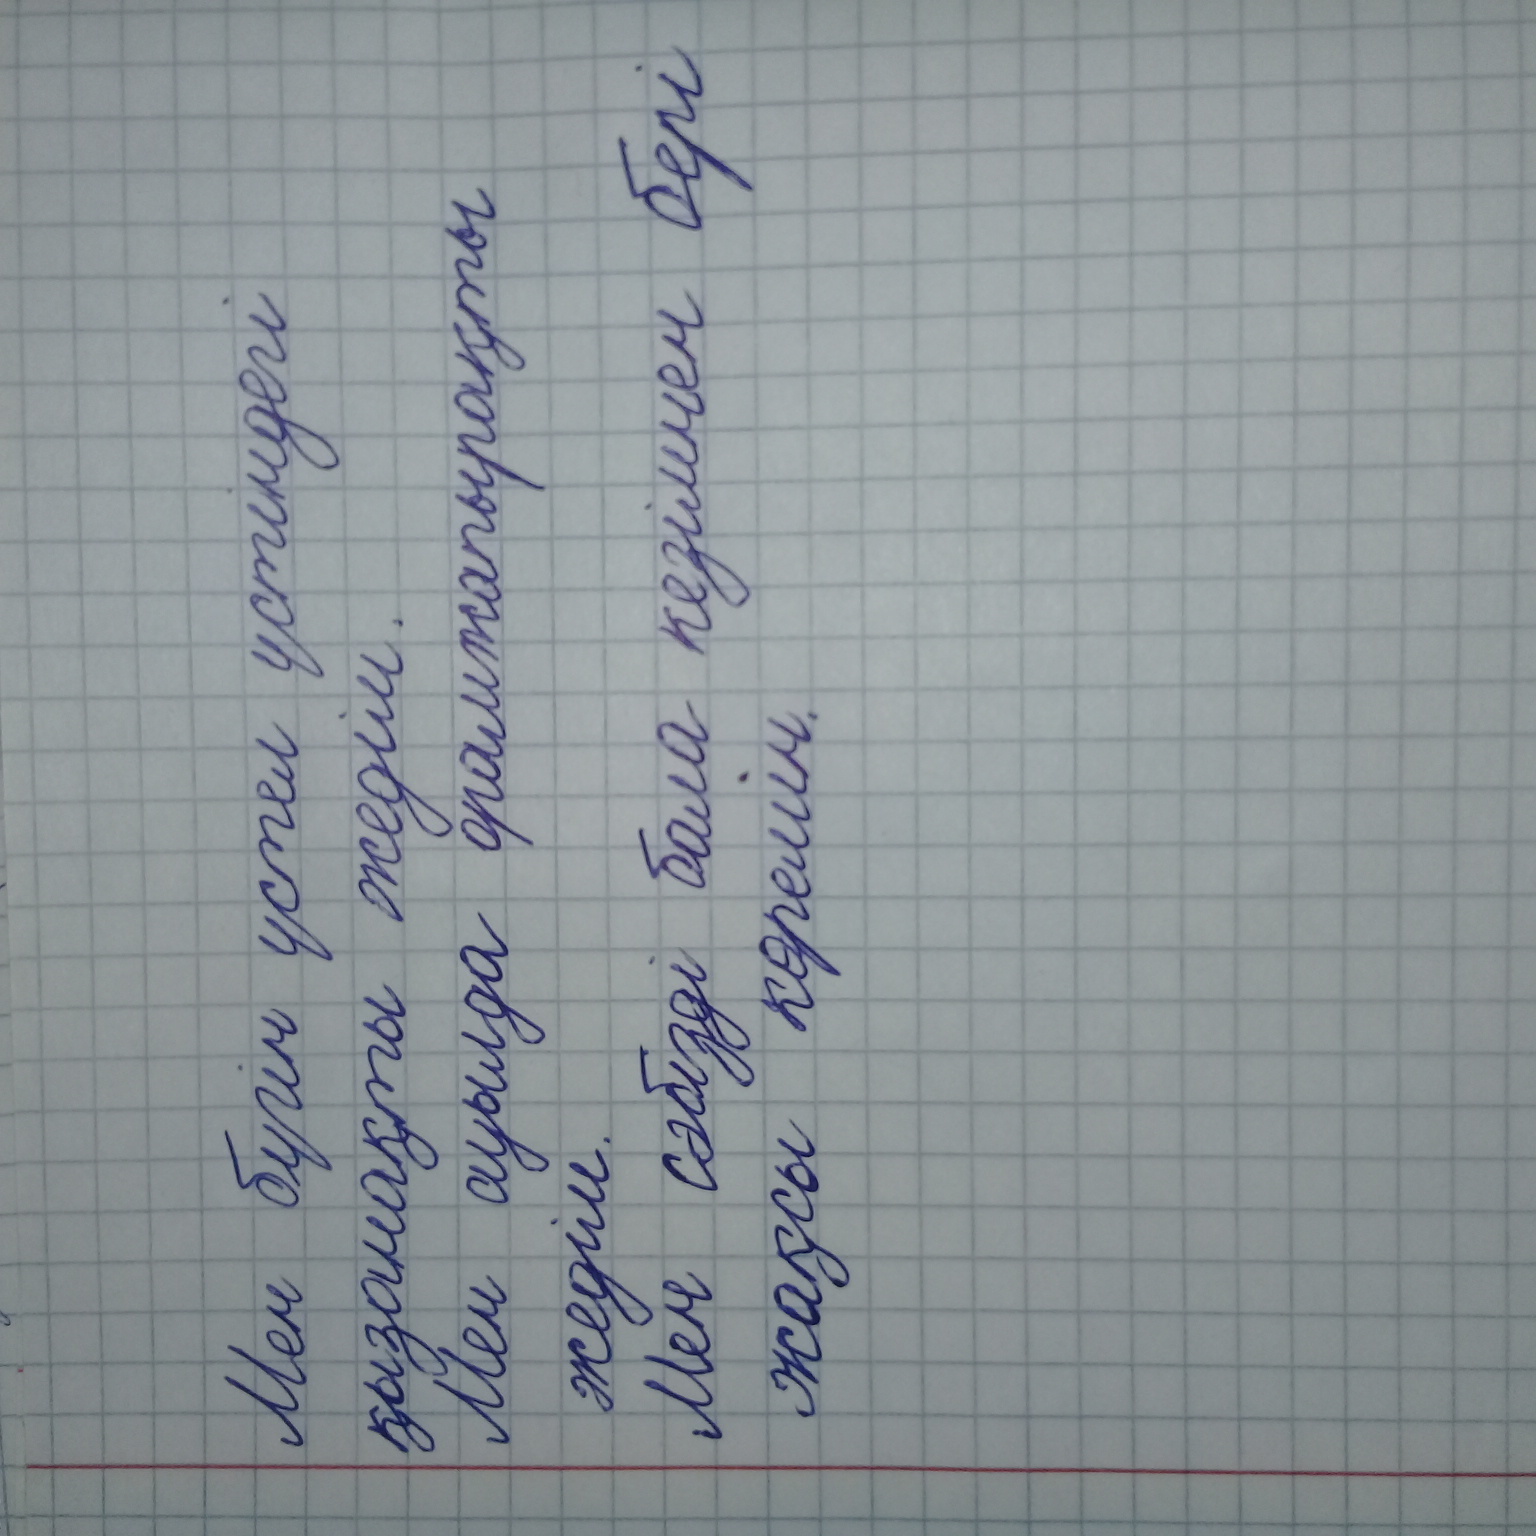 Мен бүгін үстел үстіндегі
қызанақты жедім.
Мен ауылда орамжапырақты
жедім.
Мен сәбізді бала кезімнен бері
жақсы көремін.